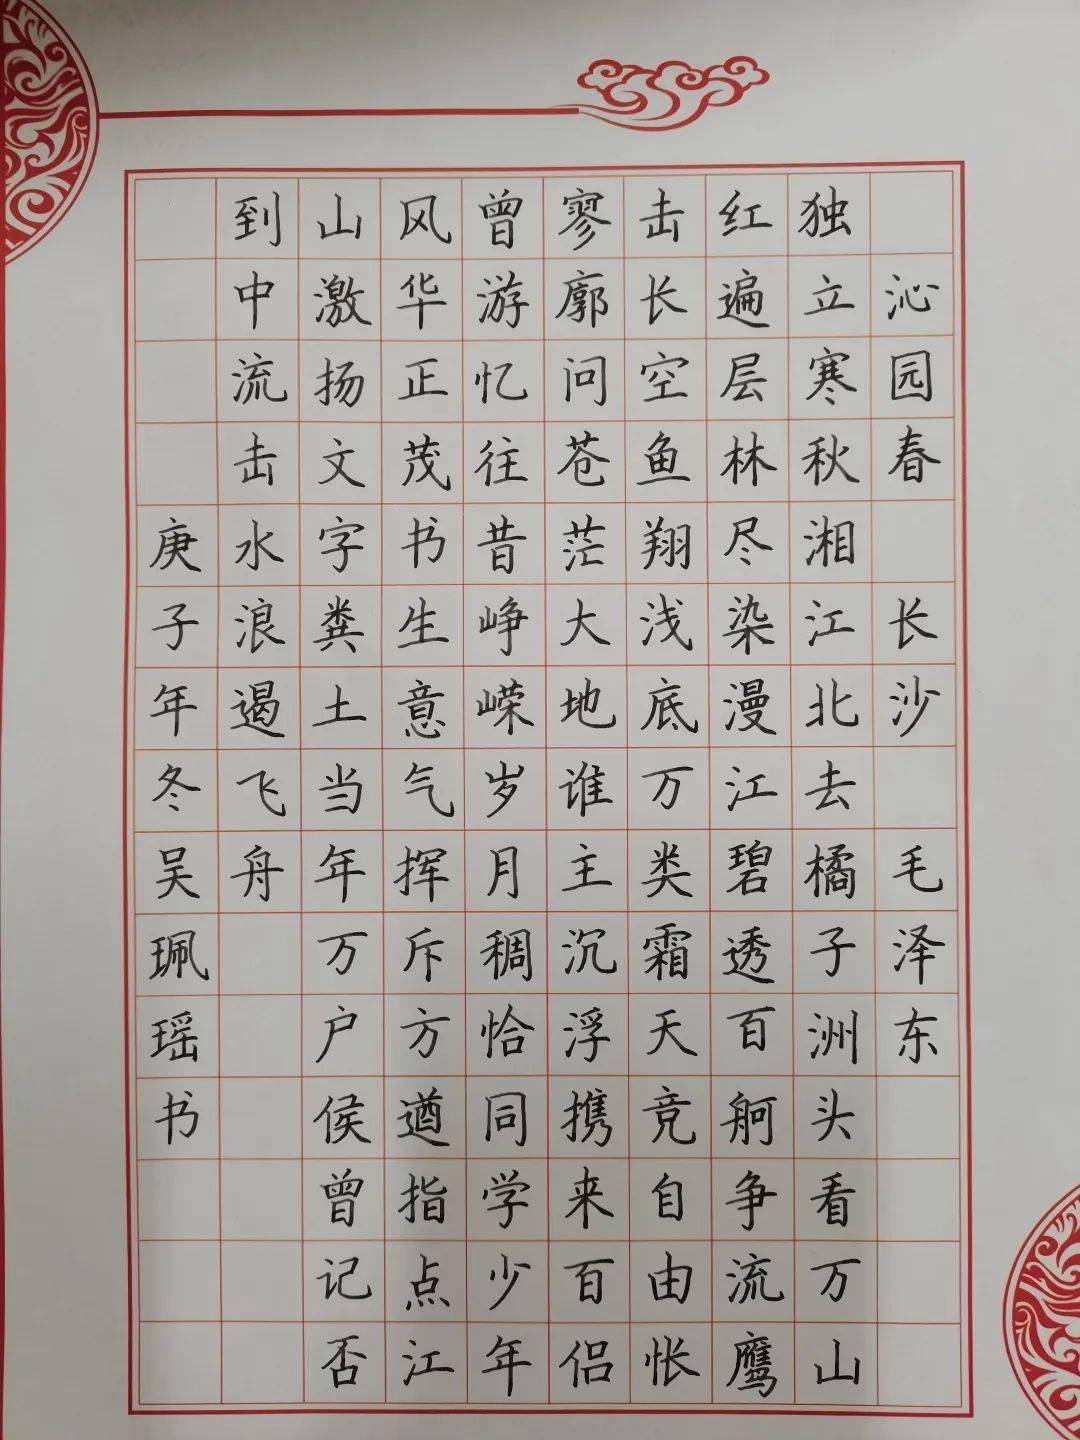 沁园春 长沙 毛泽东
独立寒秋湘江北去橘子洲头看万山
红遍层林尽染漫江碧透百舸争流鹰
击长空鱼翔浅底万类霜天竞自由怅
寥廓问苍茫大地谁主沉浮携来百侣
曾游忆往昔峥嵘岁月稠恰同学少年
风华正茂书生意气挥斥方遒指点江
山激扬文字粪土当年万户侯曾记否
到中流击水浪遏飞舟
庚子年冬吴珮瑶书